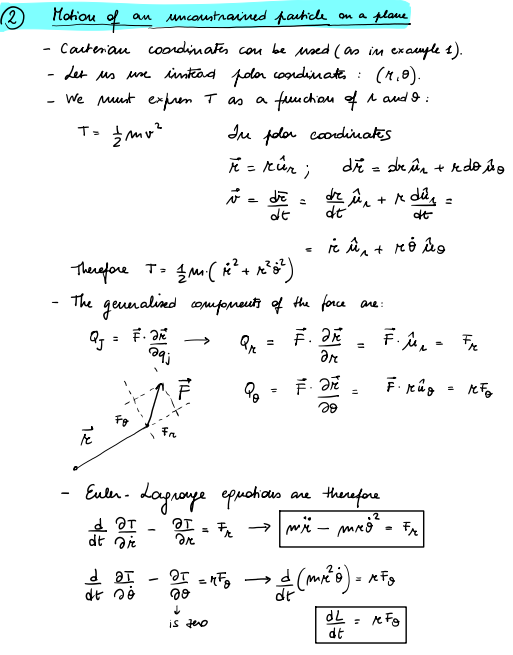 ② Motion of an unconstrained particle on a plane
- Cartesian coordinates can be used (as in example 1).
- Let us use instead polar coordinates : (r, θ).
- We must express T as a function of r and θ :
T = 1/2 mv² In polar coordinates
r⃗ = r û_r ; dr⃗ = dr û_r + r dθ û_θ
v⃗ = dr⃗/dt = dr/dt û_r + r dû_r/dt =
= ṙ û_r + r θ̇ û_θ
Therefore T = 1/2 m · ( ṙ² + r² θ̇² )
- The generalised components of the force are:
Q_J = F⃗ · ∂r⃗/∂q_j → Q_r = F⃗ · ∂r⃗/∂r = F⃗ · û_r = F_r
Q_θ = F⃗ · ∂r⃗/∂θ = F⃗ · r û_θ = r F_θ
F⃗
F_θ
F_r
r⃗
- Euler-Lagrange equations are therefore
d/dt ∂T/∂ṙ - ∂T/∂r = F_r → m r̈ - m r θ̇² = F_r
d/dt ∂T/∂θ̇ - ∂T/∂θ = r F_θ → d/dt ( m r² θ̇ ) = r F_θ
↓
is zero
dL/dt = r F_θ